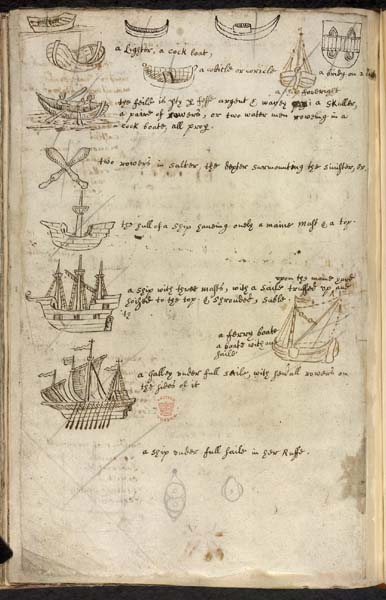 a Lighter, a cock boat,
a whirle or coricle
a ship
the feilde is
argent & waves
a Skuller,
a paire of rowers, or two water men roweing in a
cock boate, all propr.
two rowers in salter, the dexter surmounting the sinister, Or.
the hull of a ship haveing onely a maine Mast & a top.
upon the maine yard
a ship with three masts, with a saile trussed up and
hoised to the top & shroudes, Sable.
a ferry boate
a boate without
saile
a Galley under full saile, with her all rowers on
the sides of it
a ship under full saile in her Ruffe.